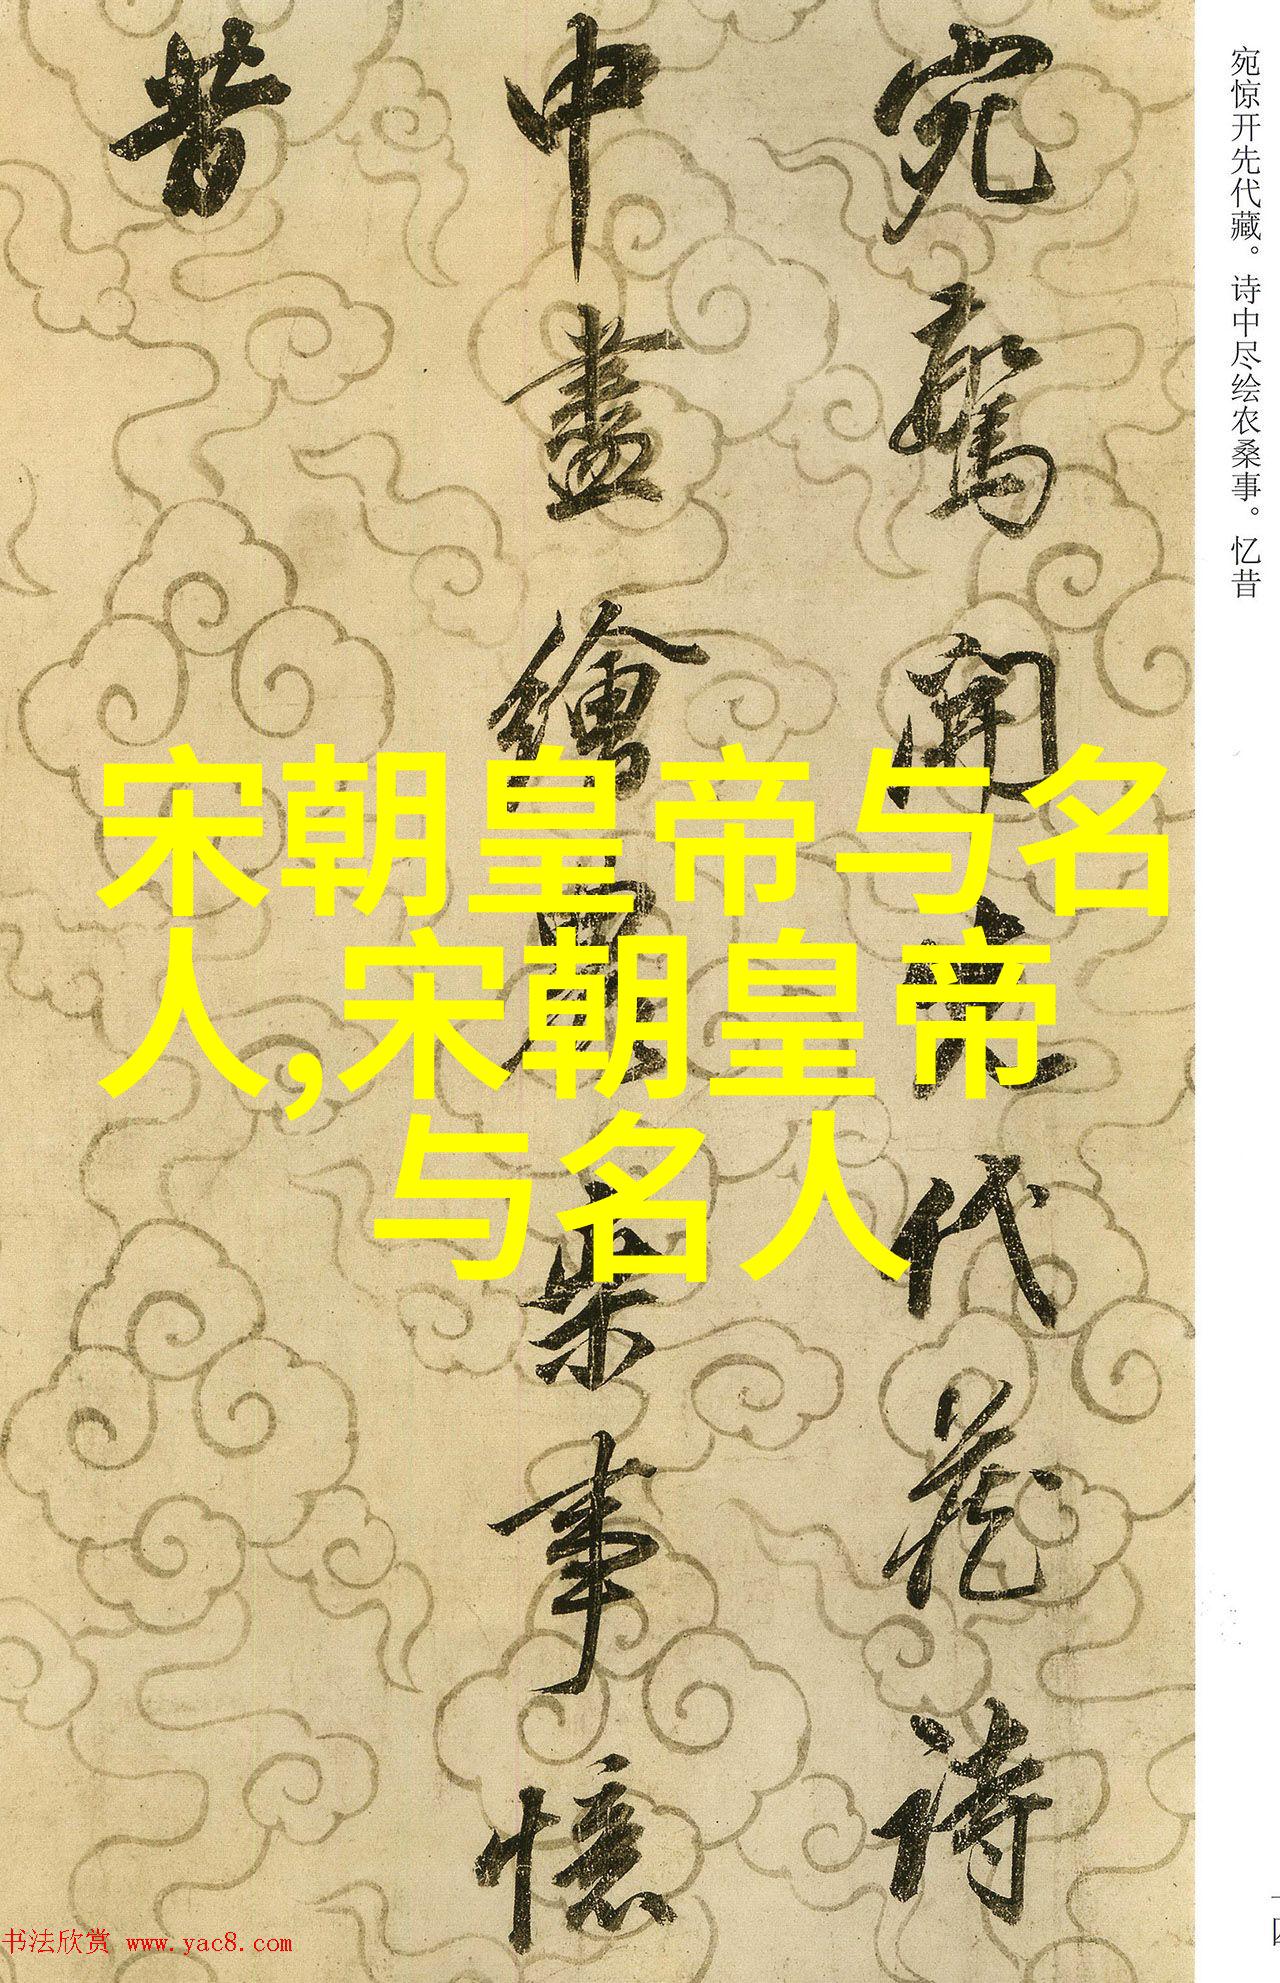 宛惊开先代藏。诗中尽绘农桑事。忆昔
宛驚開先代藏詩
中盡繪農桒事憶
昔
宋朝皇帝与名
人,宋朝皇帝
与名人
书法欣赏 www.yac8.com